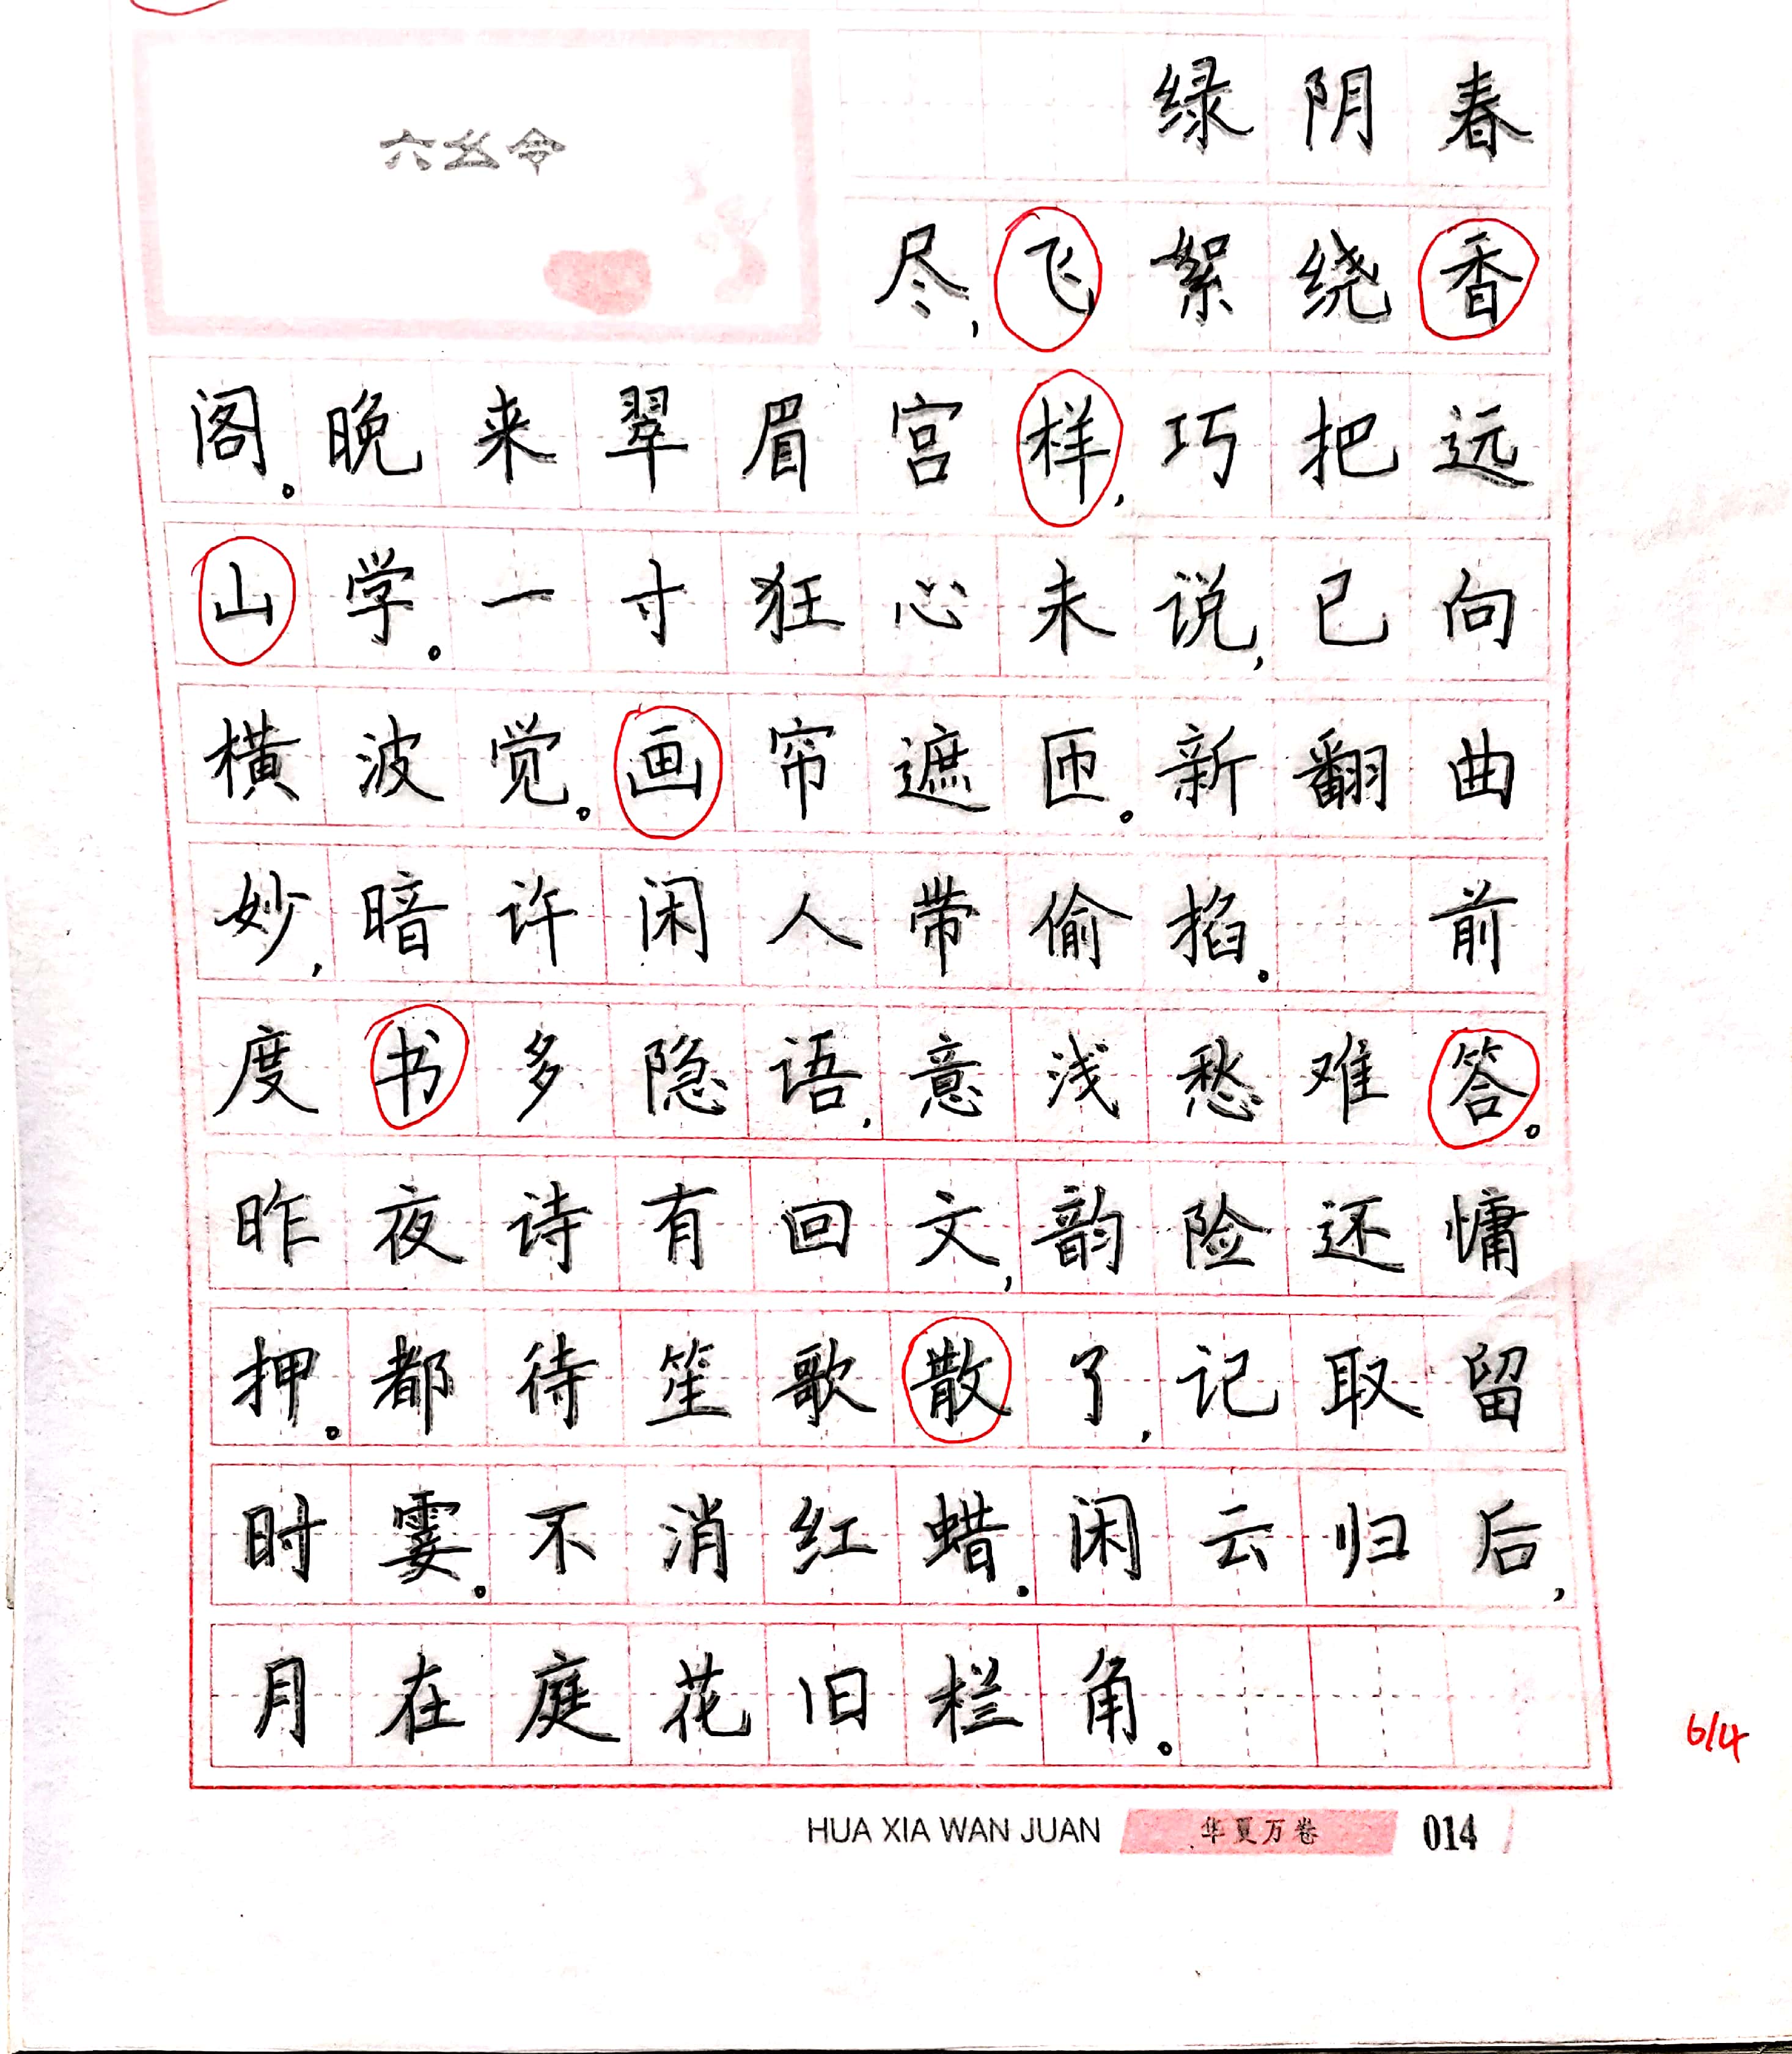 六幺令
绿阴春
尽,飞絮绕香
阁。晚来翠眉宫样,巧把远
山学。一寸狂心未说,已向
横波觉。画帘遮匝。新翻曲
妙,暗许闲人带偷掐。 前
度书多隐语,意浅愁难答。
昨夜诗有回文,韵险还慵
押。都待笙歌散了,记取留
时霎。不消红蜡。闲云归后,
月在庭花旧栏角。
6/4
HUA XIA WAN JUAN 华夏万卷 014